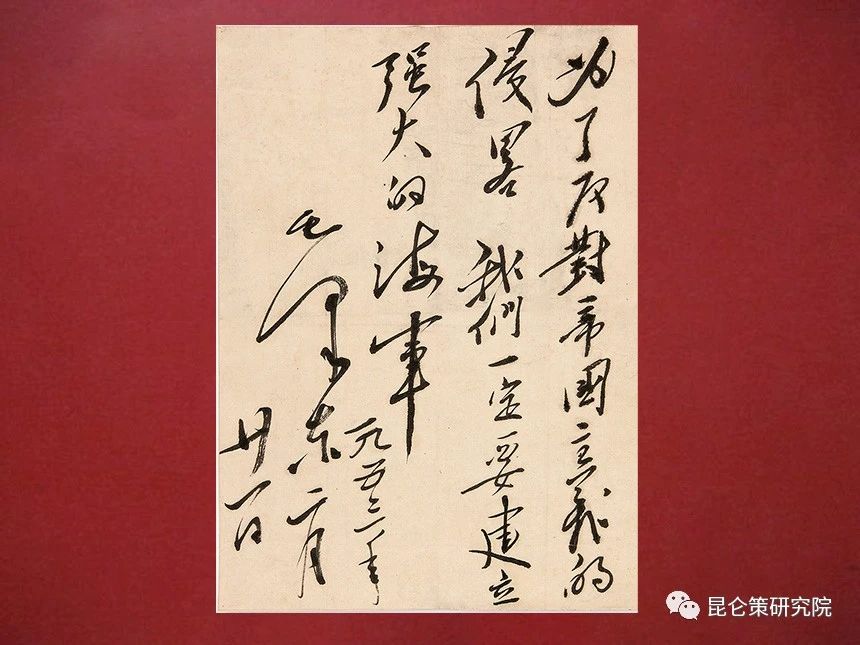 为了反對帝國主義的
侵畧 我們一定要建立
强大的海軍 一九五三年
毛泽东 二月
廿一日
昆仑策研究院